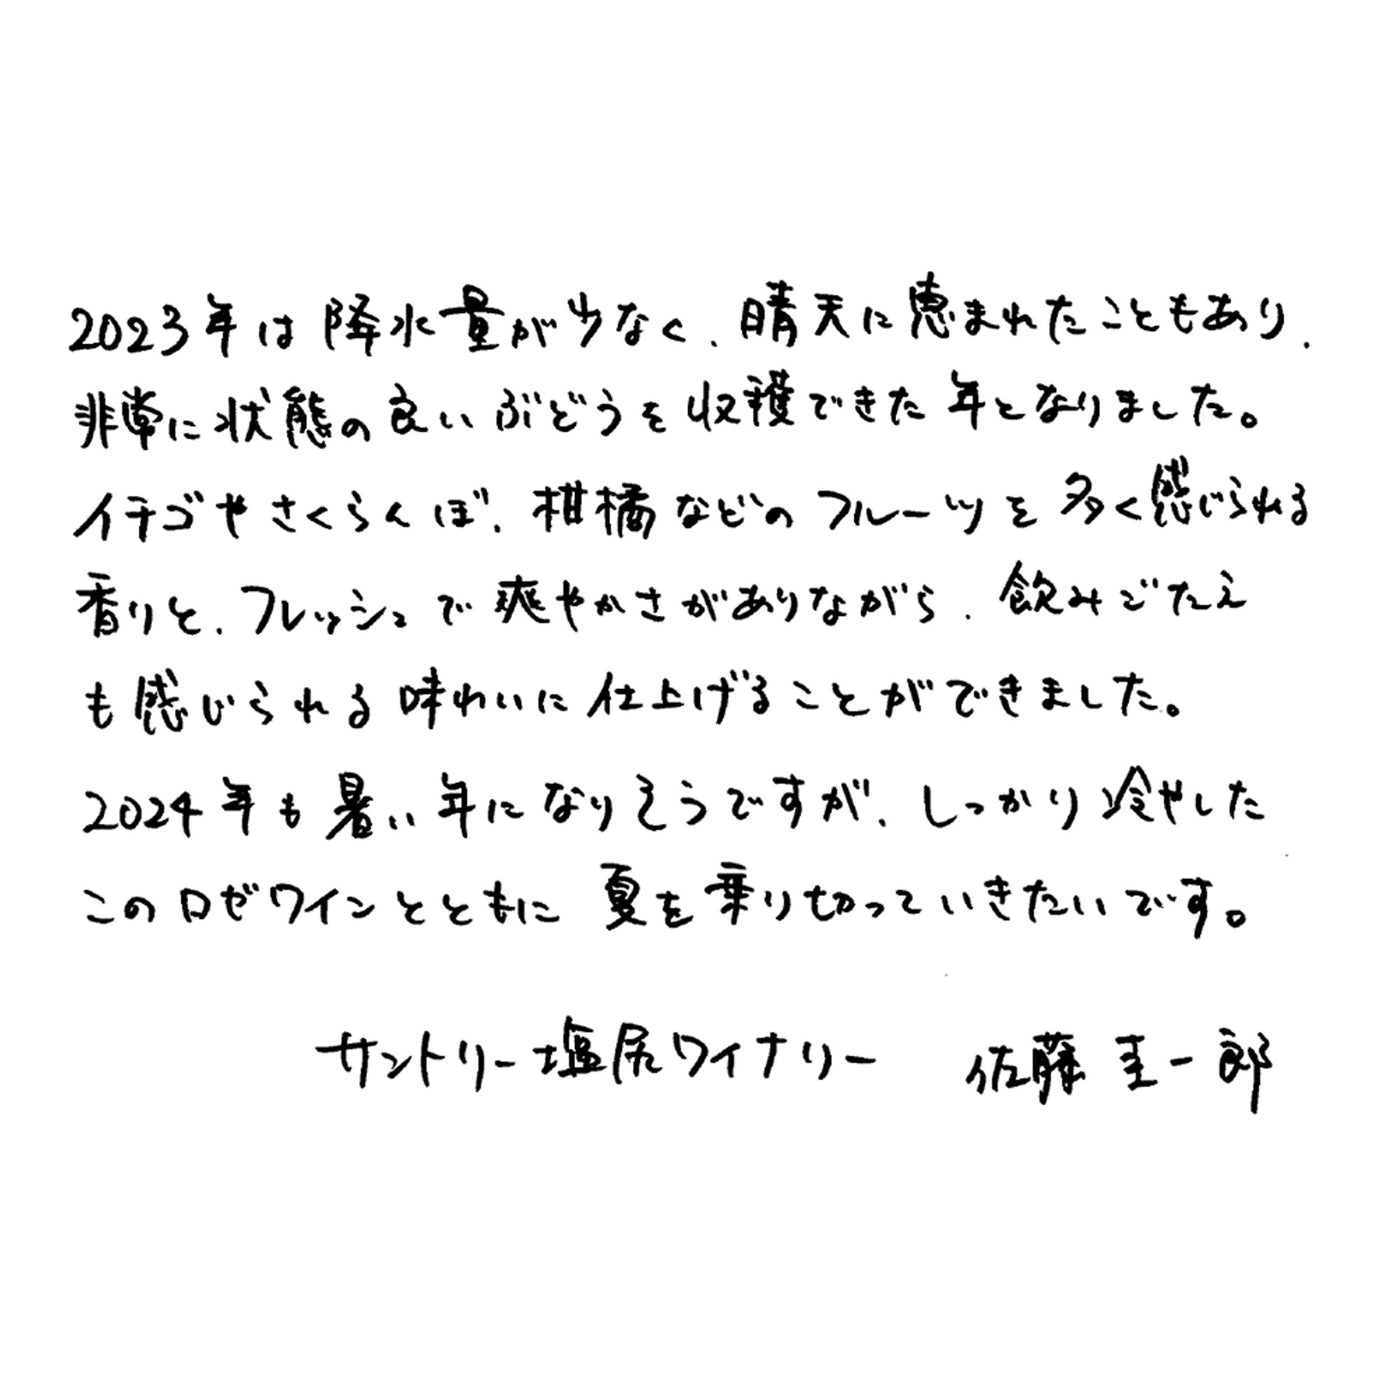 2023年は降水量が少なく、晴天に恵まれたこともあり、
非常に状態の良いぶどうを収穫できた年となりました。
イチゴやさくらんぼ、柑橘などのフルーツを多く感じられる
香りと、フレッシュで爽やかさがありながら、飲みごたえ
も感じられる味わいに仕上げることができました。
2024年も暑い年になりそうですが、しっかり冷やした
このロゼワインとともに夏を乗り切っていきたいです。
サントリー塩尻ワイナリー 佐藤圭一郎